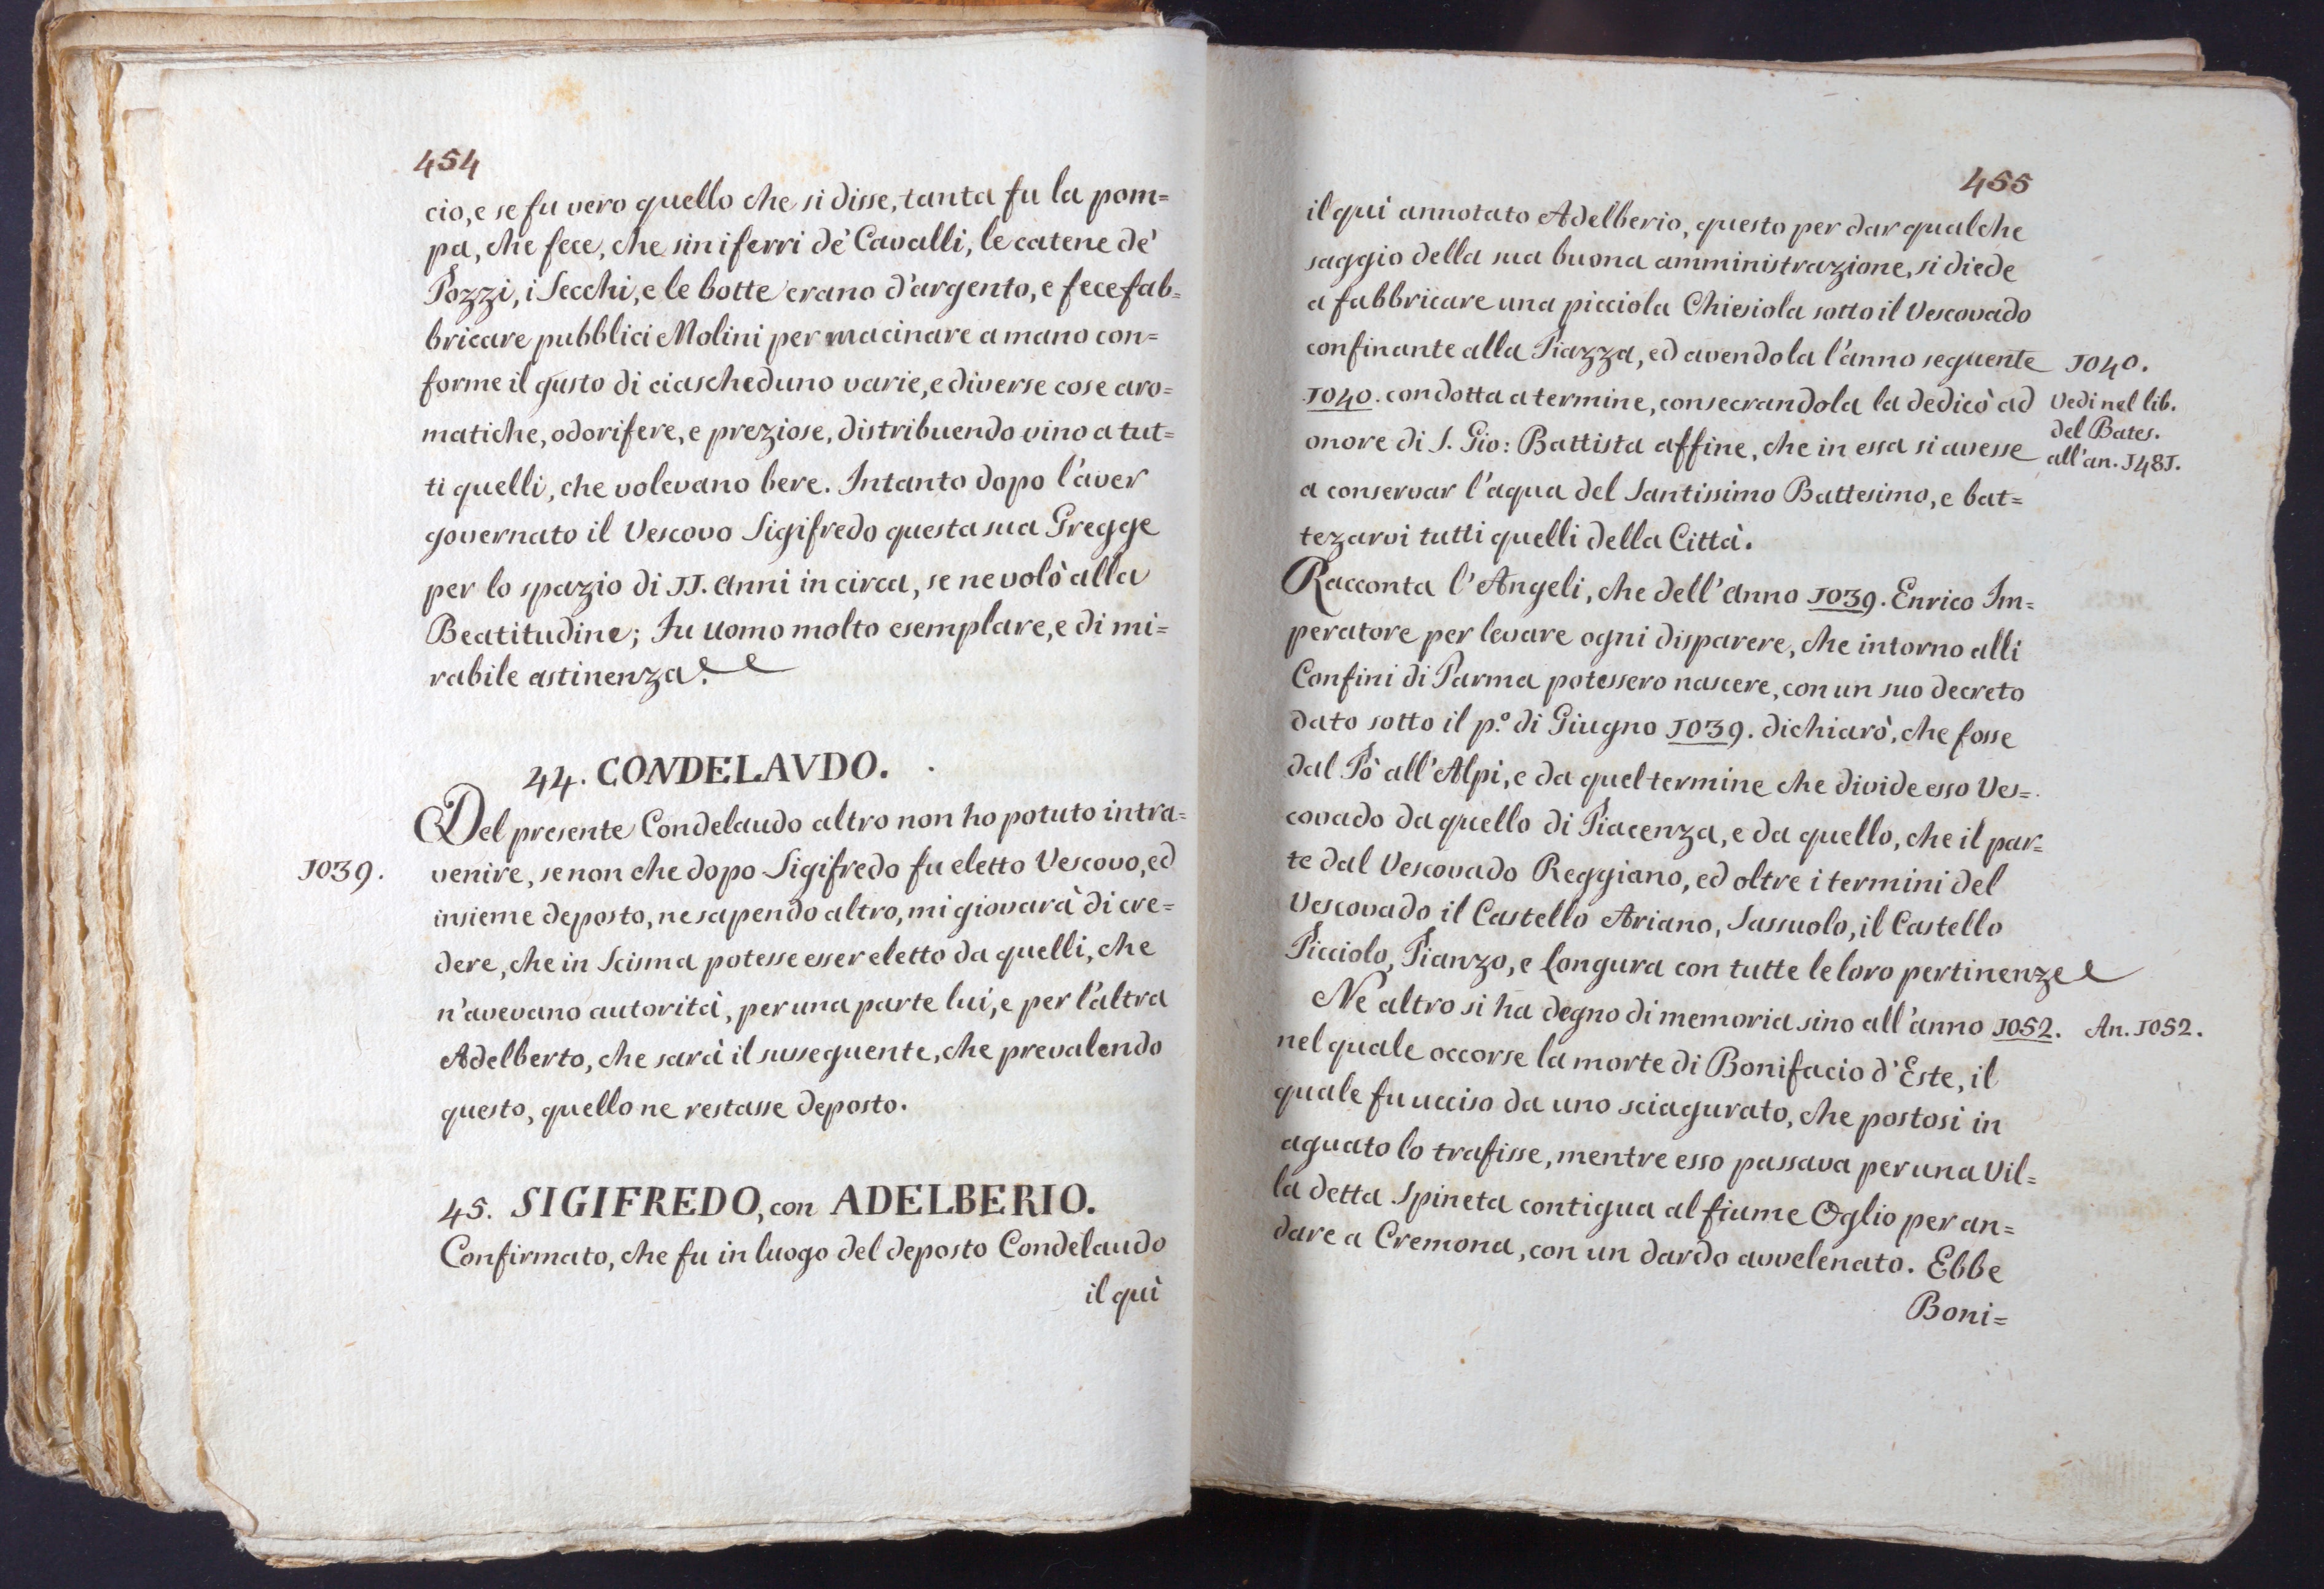 454
cio, e se fu vero quello che si disse, tanta fu la pom=
pa, che fece, che sin i ferri de' Cavalli, le catene de'
Pozzi, i Secchi, e le botte erano d'argento, e fece fab=
bricare pubblici Molini per macinare a mano con=
forme il gusto di ciascheduno varie, e diverse cose aro=
matiche, odorifere, e preziose, distribuendo vino a tut=
ti quelli, che volevano bere. Intanto dopo l'aver
governato il Vescovo Sigifredo questa sua Gregge
per lo spazio di 11. anni in circa, se ne volò alla
Beatitudine; Fu uomo molto esemplare, e di mi=
rabile astinenza.
44. CONDELAVDO.
Del presente Condelaudo altro non ho potuto intra=
1039.
venire, se non che dopo Sigifredo fu eletto Vescovo, ed
insieme deposto, ne sapendo altro, mi giovarà di cre=
dere, che in Scisma potesse esser eletto da quelli, che
n'avevano autorità, per una parte lui, e per l'altra
Adelberto, che sarà il susseguente, che prevalendo
questo, quello ne restasse deposto.
45. SIGIFREDO, con ADELBERIO.
Confirmato, che fu in luogo del deposto Condelaudo
il quì
455
il quì annotato Adelberio, questo per dar qualche
saggio della sua buona amministrazione, si diede
a fabbricare una picciola Chiesiola sotto il Vescovado
confinante alla Piazza, ed avendola l'anno seguente
1040. condotta a termine, consecrandola la dedicò ad
onore di S. Gio: Battista affine, che in essa si avesse
a conservar l'aqua del Santissimo Battesimo, e bat=
tezarvi tutti quelli della Città.
1040.
Vedi nel lib.
del Bates.
all'an. 1481.
Racconta l'Angeli, che dell'anno 1039. Enrico Im=
peratore per levare ogni disparere, che intorno alli
Confini di Parma potessero nascere, con un suo decreto
dato sotto il p.º di Giugno 1039. dichiarò, che fosse
dal Pò all'Alpi, e da quel termine che divide esso Ves=
covado da quello di Piacenza, e da quello, che il par=
te dal Vescovado Reggiano, ed oltre i termini del
Vescovado il Castello Ariano, Sassuolo, il Castello
Picciolo, Pianzo, e Longura con tutte le loro pertinenze
Ne altro si ha degno di memoria sino all'anno 1052.
An. 1052.
nel quale occorse la morte di Bonifacio d'Este, il
quale fu ucciso da uno sciagurato, che postosi in
aguato lo trafisse, mentre esso passava per una Vil=
la detta Spineta contigua al fiume Oglio per an=
dare a Cremona, con un dardo avvelenato. Ebbe
Boni=